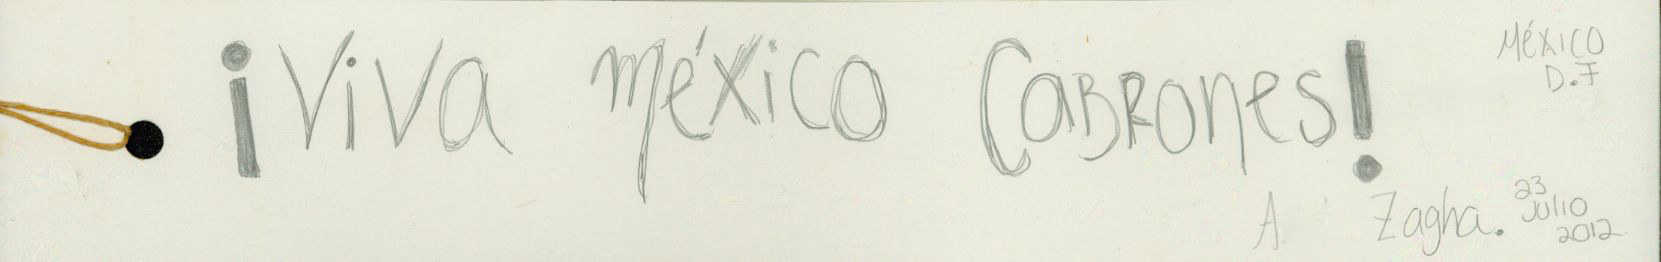 ¡Viva México Cabrones!
México
D.F
A. Zagha.
23
Julio
2012